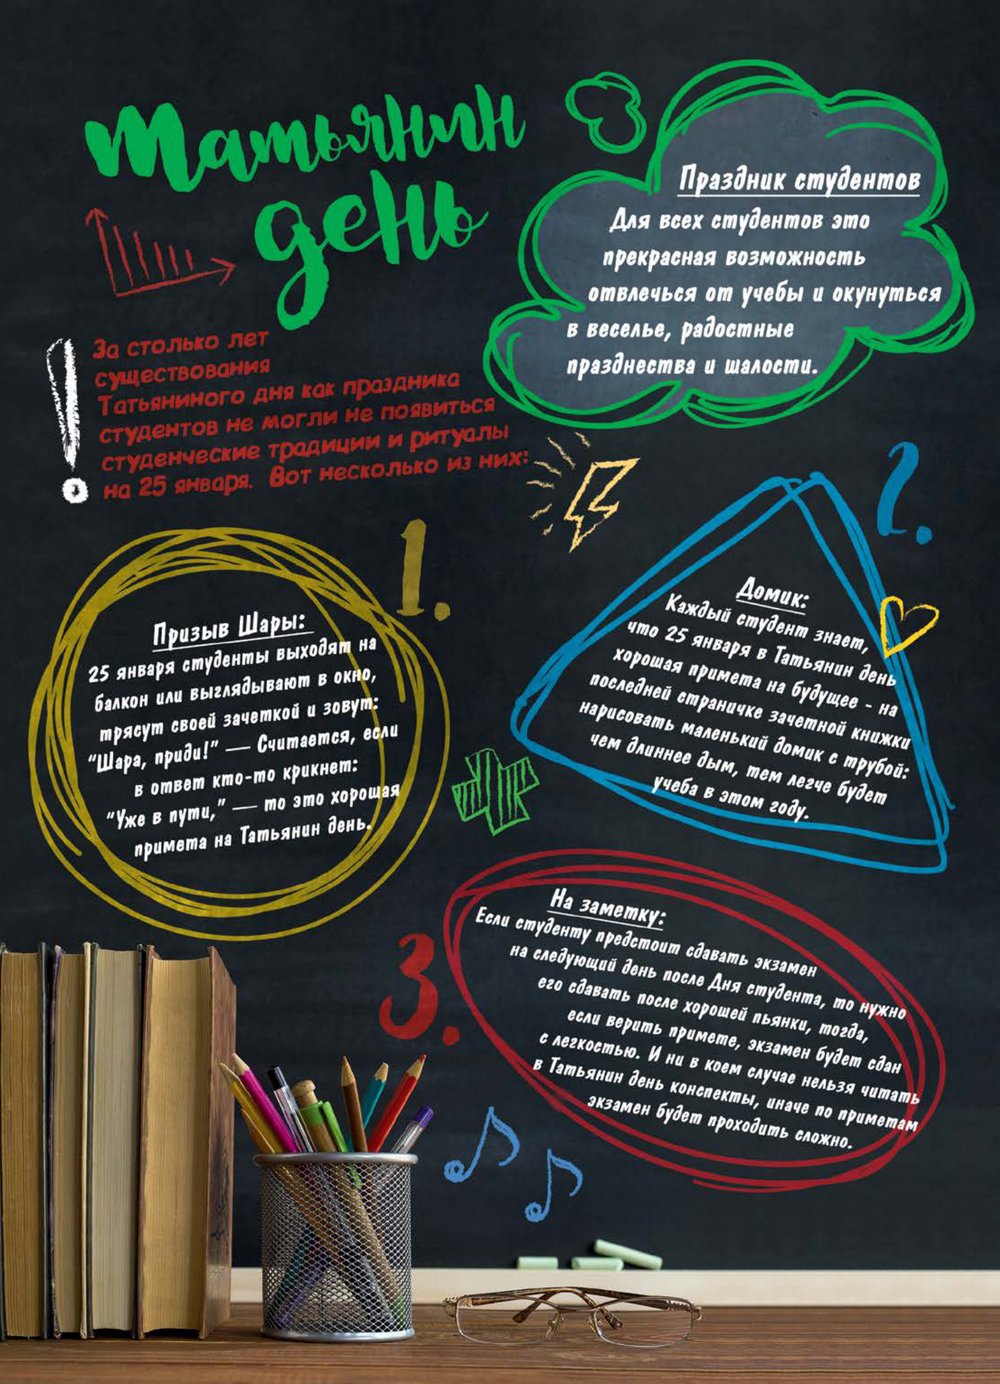 Татьянин
день
Праздник студентов
Для всех студентов это
прекрасная возможность
отвлечься от учебы и окунуться
в веселье, радостные
празднества и шалости.
За столько лет
существования
Татьяниного дня как праздника
студентов не могли не появиться
студенческие традиции и ритуалы
на 25 января. Вот несколько из них:
1.
Призыв Шары:
25 января студенты выходят на
балкон или выглядывают в окно,
трясут своей зачеткой и зовут:
“Шара, приди!” — Считается, если
в ответ кто-то крикнет:
“Уже в пути,” — то это хорошая
примета на Татьянин день.
2.
Домик:
Каждый студент знает,
что 25 января в Татьянин день
хорошая примета на будущее - на
последней страничке зачетной книжки
нарисовать маленький домик с трубой:
чем длиннее дым, тем легче будет
учеба в этом году.
3.
На заметку:
Если студенту предстоит сдавать экзамен
на следующий день после Дня студента, то нужно
его сдавать после хорошей пьянки, тогда,
если верить примете, экзамен будет сдан
с легкостью. И ни в коем случае нельзя читать
в Татьянин день конспекты, иначе по приметам
экзамен будет проходить сложно.